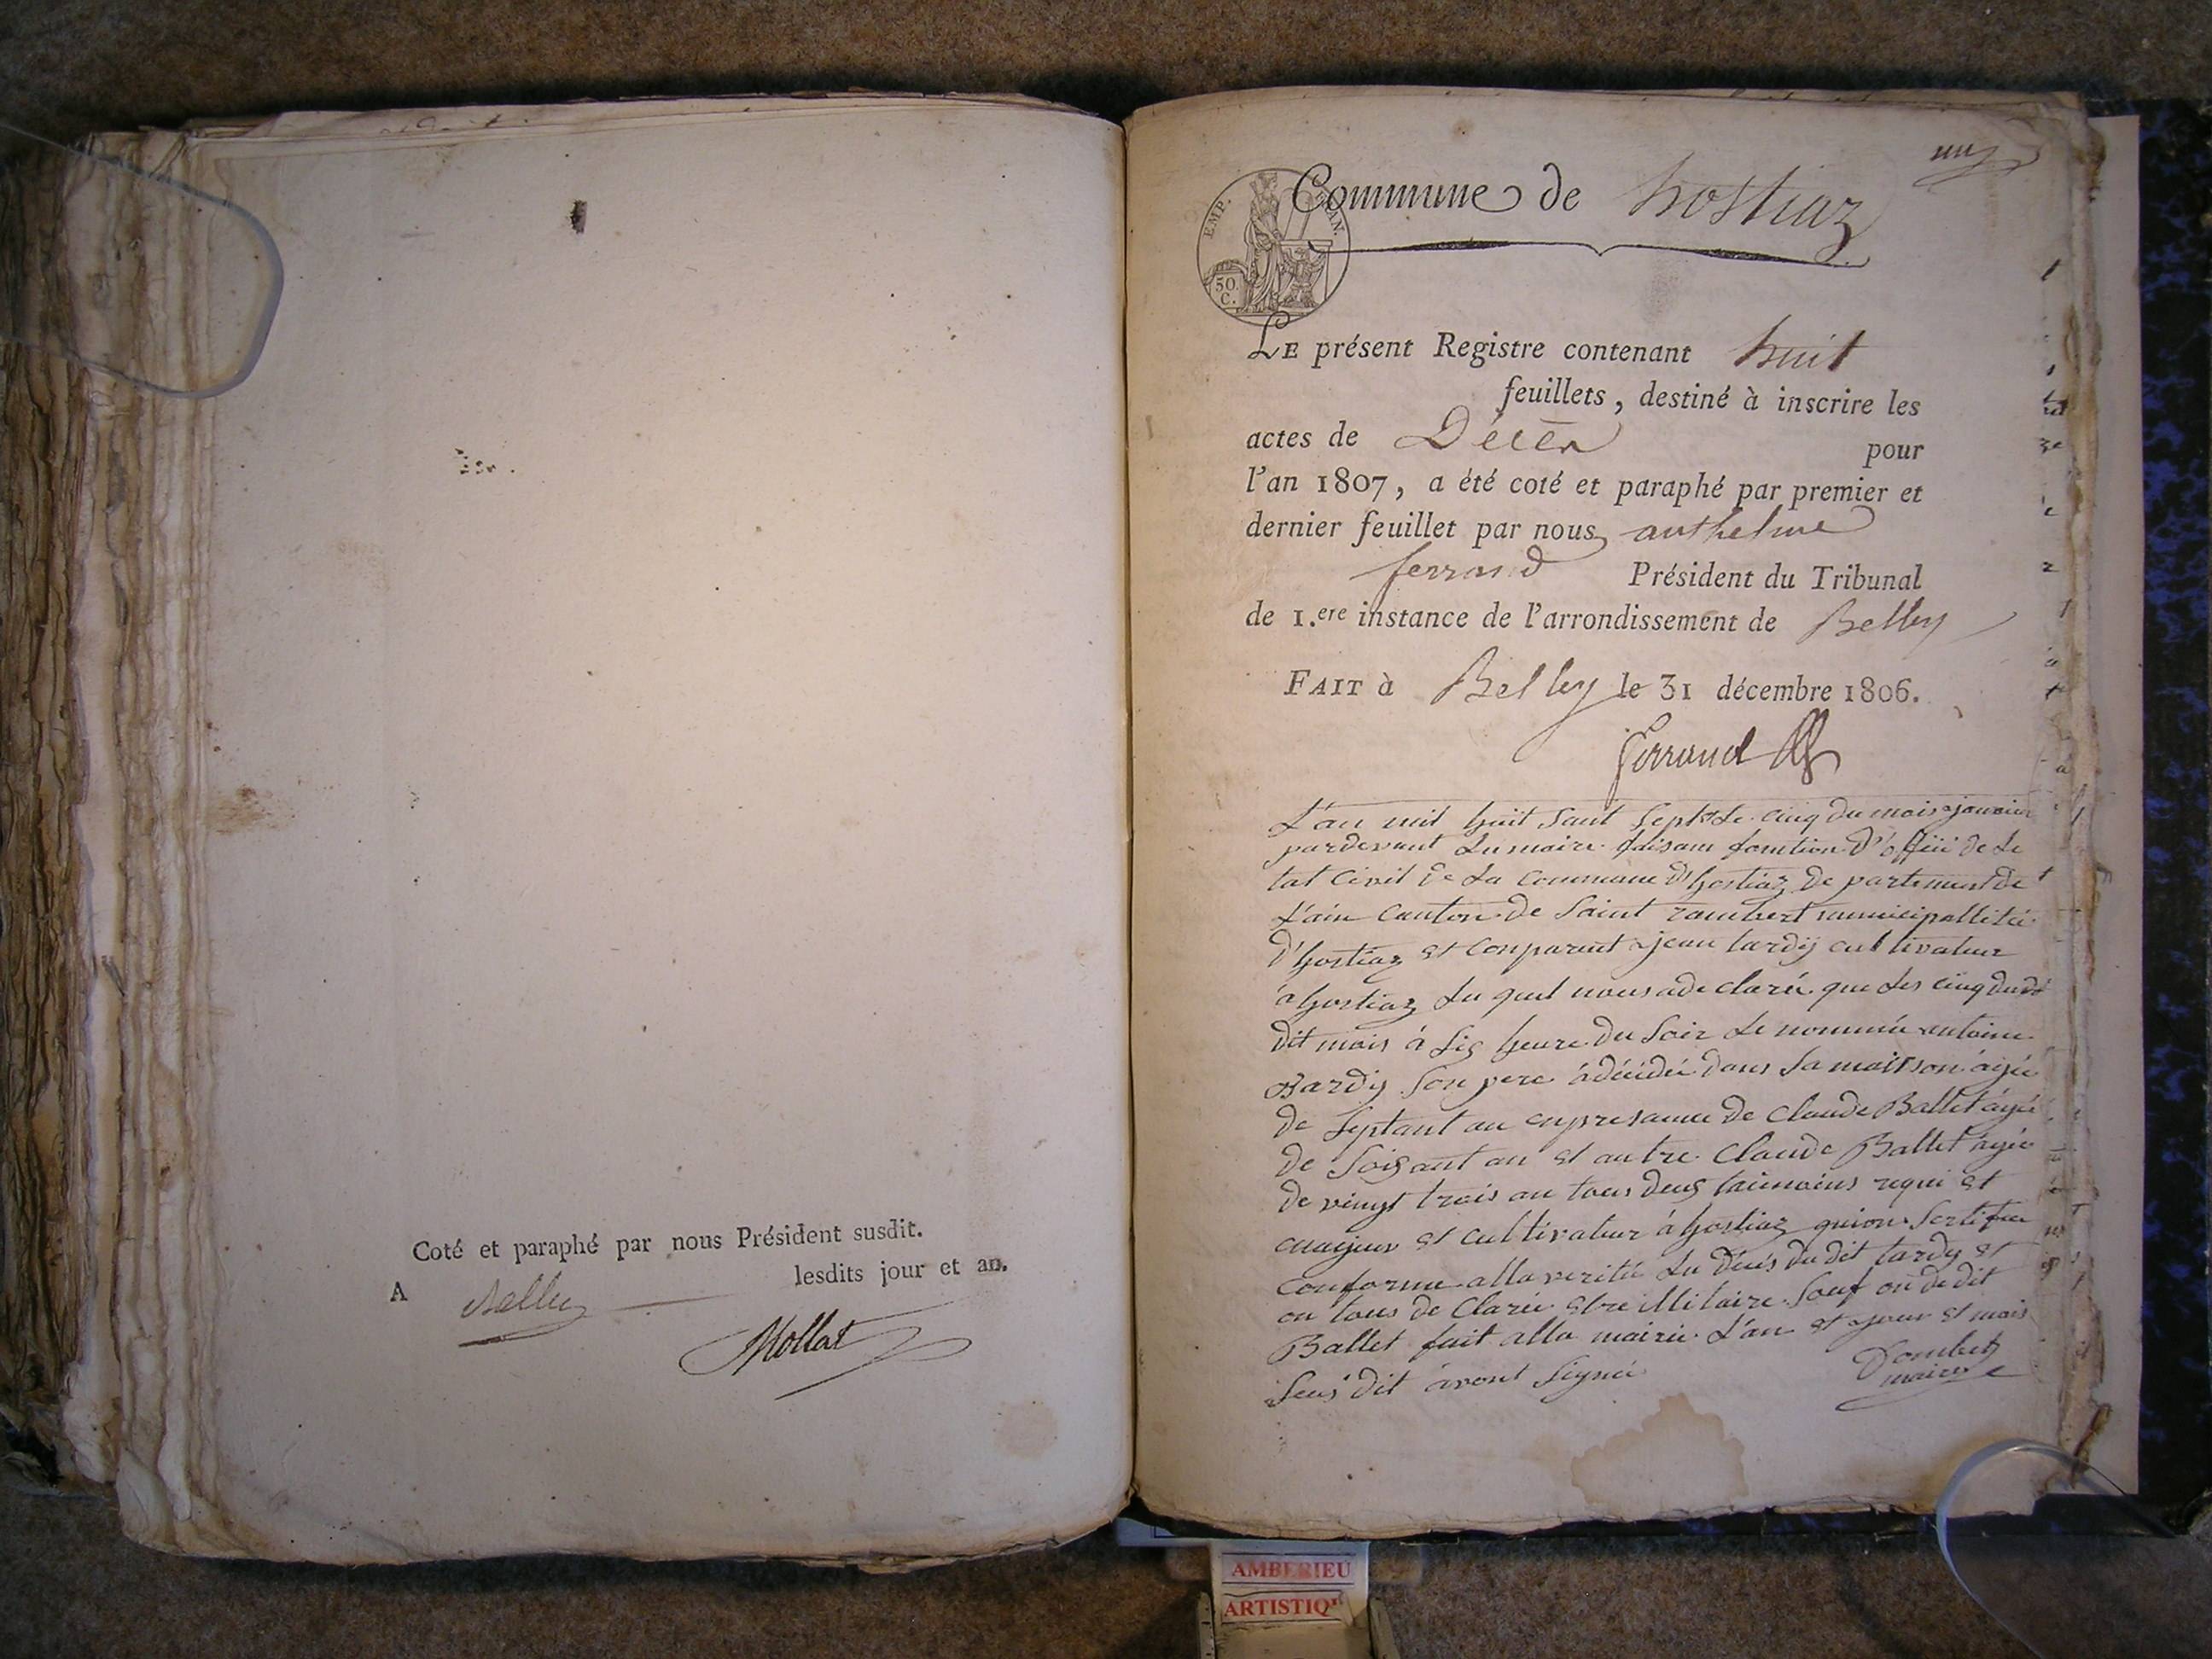 Coté et paraphé par nous Président susdit.
A Belley lesdits jour et an.
Mollat
un
Commune de hostiaz
EMP. 
50.
C.
LE présent Registre contenant huit
feuillets, destiné à inscrire les
actes de Décès pour
l'an 1807, a été coté et paraphé par premier et
dernier feuillet par nous anthelme
ferrand Président du Tribunal
de 1.ere instance de l'arrondissement de Belley
FAIT à Belley le 31 décembre 1806.
Ferrand
L'an mil huit Sant Sept Le cinq du mois janvier
pardevant Lu maire faisant fontion d'offiié de Le
tat Civil de La Commune d'hostiaz De partement de
L'ain Canton de Saint rambert municipallité
D'hostiaz et Conparut jean tardij cultivateur
a hostiaz Lu quel nous ade claré que Les cinq du
dit mois à Sis heure Du Soir Le nommé antoine
tardij Son pere à décidé dans Sa maison âgé
de Septant an enpresance de Claude Ballet âgé
de Soisant an et autre Claude Ballet âgé
de vingt trois an tous deus taimoins requi et
majeur et Cultivateur à hostiaz qui on Sertifié
Conforme alla verité Lu Décés du dit tardy et
on tous de Claré etre illitaire Souf on de dit
Ballet fait alla mairie L'an et jour et mois
Sus dit avont Signé
Dombet
maire
AMBERIEU
ARTISTIQ